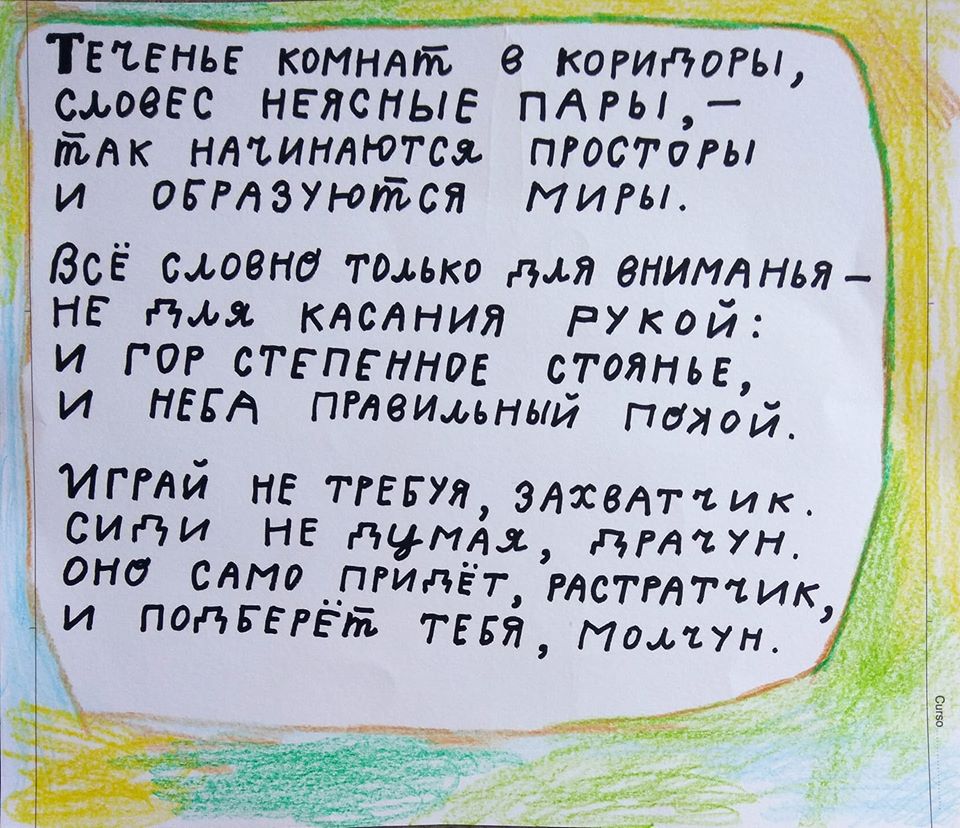 Теченье комнат в коридоры,
словес неясные пары, –
так начинаются просторы
и образуются миры.
Всё словно только для вниманья –
не для касания рукой:
и гор степенное стоянье,
и неба правильный покой.
Играй не требуя, захватчик.
Сиди не думая, драчун.
Оно само придёт, растратчик,
и подберёт тебя, молчун.
Curso